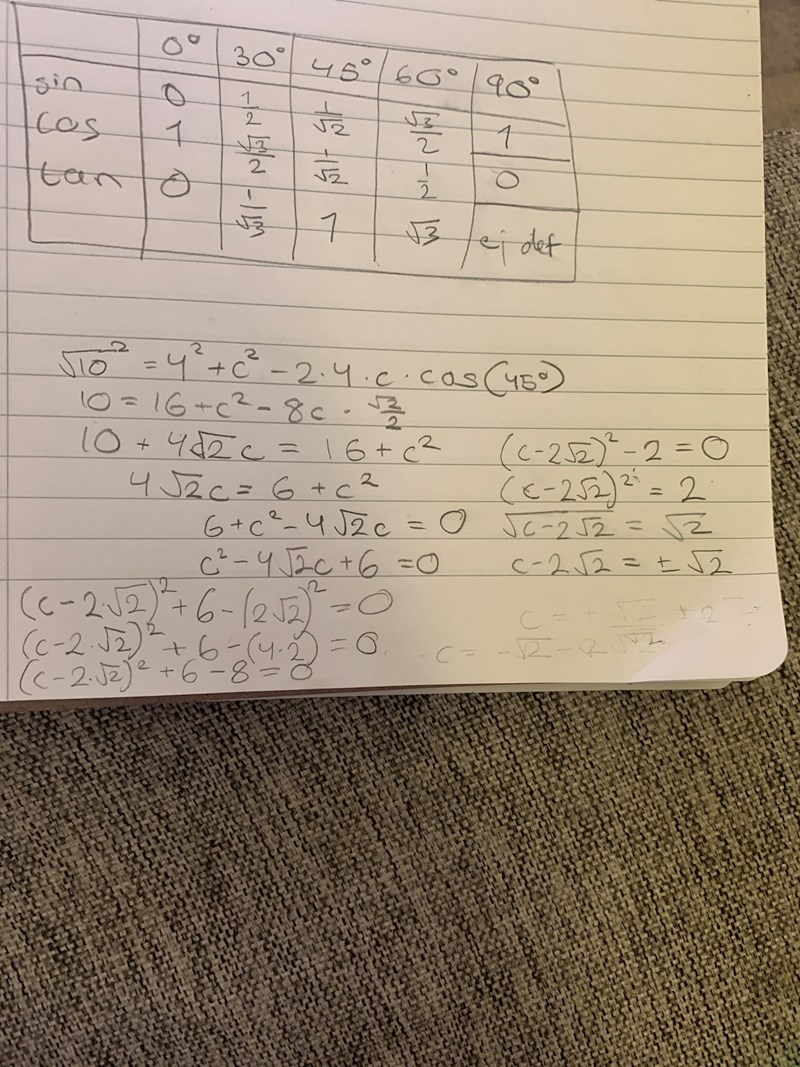 0° 30° 45° 60° 90°
sin 0 1/2 1/√2 √3/2 1
cos 1 √3/2 1/√2 1/2 0
tan 0 1/√3 1 √3 ej def
√10² = 4² + c² - 2·4·c·cos(45°)
10 = 16 + c² - 8c · √2/2
10 + 4√2c = 16 + c²
4√2c = 6 + c²
6 + c² - 4√2c = 0
c² - 4√2c + 6 = 0
(c - 2·√2)² + 6 - (2√2)² = 0
(c - 2·√2)² + 6 - (4·2) = 0
(c - 2·√2)² + 6 - 8 = 0
(c - 2√2)² - 2 = 0
(c - 2√2)² = 2
√c - 2√2 = √2
c - 2√2 = ±√2